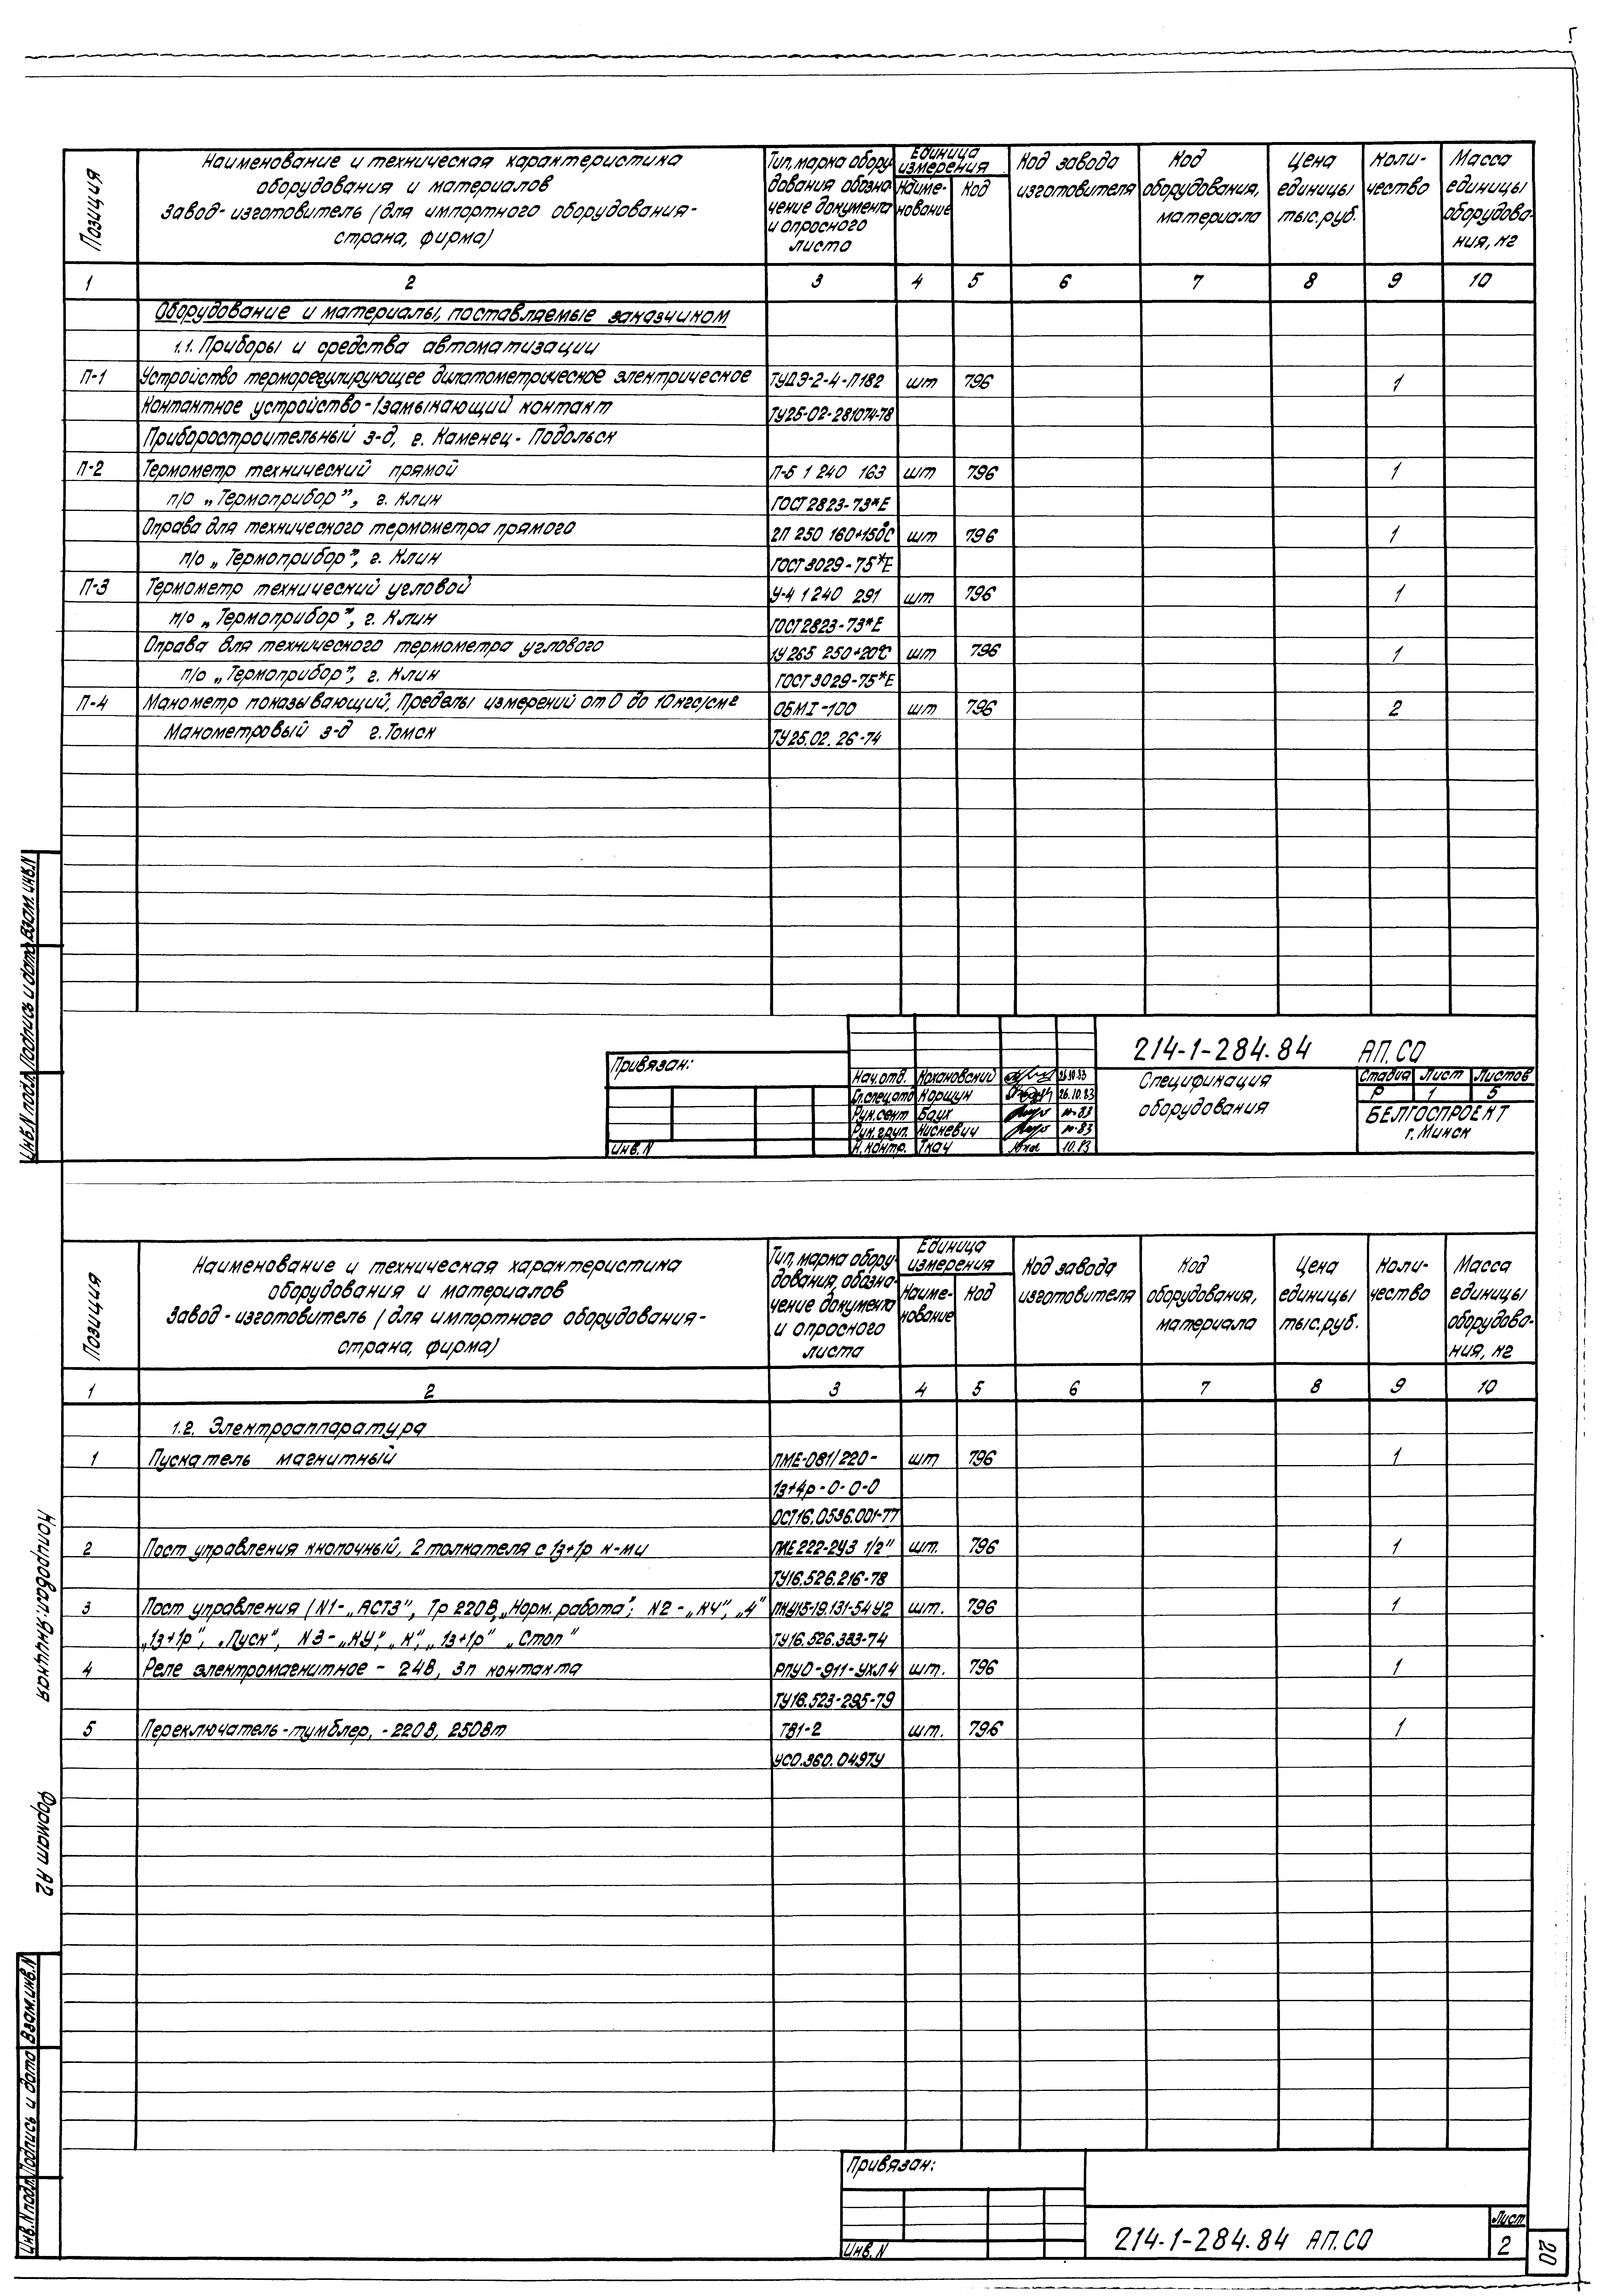 Позиция
Наименование и техническая характеристика
оборудования и материалов
Завод-изготовитель (для импортного оборудования-
страна, фирма)
Тип, марка обору-
дования обозна-
чение документа
и опросного
листа
Единица
измерения
Наиме-
нование
Код
Код завода
изготовителя
Код
оборудования,
материала
Цена
единицы
тыс.руб.
Коли-
чество
Масса
единицы
оборудова-
ния, кг
1 2 3 4 5 6 7 8 9 10
Оборудование и материалы, поставляемые заказчиком
1.1. Приборы и средства автоматизации
П-1 Устройство терморегулирующее дилатометрическое электрическое ТУДЭ-2-4-П182 шт 796 1
Контактное устройство-1замыкающий контакт ТУ25-02-281074-78
Приборостроительный з-д, г. Каменец-Подольск
П-2 Термометр технический прямой П-5 1 240 163 шт 796 1
п/о „Термоприбор”, г. Клин ГОСТ 2823-73*Е
Оправа для технического термометра прямого 2П 250 160+150°С шт 796 1
п/о „Термоприбор”, г. Клин ГОСТ 3029-75*Е
П-3 Термометр технический угловой У-4 1 240 291 шт 796 1
п/о „Термоприбор”, г. Клин ГОСТ 2823-73*Е
Оправа для технического термометра углового 1У 265 250+20°С шт 796 1
п/о „Термоприбор”, г. Клин ГОСТ 3029-75*Е
П-4 Манометр показывающий, Пределы измерений от 0 до 10 кгс/см² ОБМ1-100 шт 796 2
Манометровый з-д г. Томск ТУ25.02.26-74
Привязан:
Инв. N
Нач.отд. Кохановский 26.10.83
Гл.спец.отд Коршун 26.10.83
Рук.сект Баух
Рук.груп. Кисневич
Н.контр. Ткач 10.83
214-1-284.84 АП.СО
Спецификация
оборудования
Стадия Лист Листов
Р 1 5
БЕЛГОСПРОЕКТ
г. Минск
Инв.N подл. Подпись и дата Взам. инв.N
Позиция
Наименование и техническая характеристика
оборудования и материалов
Завод-изготовитель (для импортного оборудования-
страна, фирма)
Тип, марка обору-
дования, обозна-
чение документа
и опросного
листа
Единица
измерения
Наиме-
нование
Код
Код завода
изготовителя
Код
оборудования,
материала
Цена
единицы
тыс.руб.
Коли-
чество
Масса
единицы
оборудова-
ния, кг
1 2 3 4 5 6 7 8 9 10
1.2. Электроаппаратура
1 Пускатель магнитный ПМЕ-081/220- шт 796 1
1з+4р-0-0-0
ОСТ16.0536.001-77
2 Пост управления кнопочный, 2 толкателя с 1з+1р к-ми ПКЕ 222-2У3 1/2" шт. 796 1
ТУ16.526.216-78
3 Пост управления (N1-„АСТЗ”, Тр 220В, „Норм. работа”; N2-„КУ”, „4” ПКУ15-19.131-54У2 шт. 796 1
„1з+1р”, „Пуск”, N3-„КУ”, „К”, „1з+1р” „Стоп” ТУ16.526.333-74
4 Реле электромагнитное - 24В, 3п контакта РПУ0-911-УХЛ4 шт. 796 1
ТУ16.523-295-79
5 Переключатель-тумблер, -220В, 250Вт ТВ1-2 шт. 796 1
УС0.360.049ТУ
Копировал: Яницкая
Формат А2
Инв.N подл. Подпись и дата Взам.инв.N
Привязан:
Инв. N
214-1-284.84 АП.СО
Лист
2
20